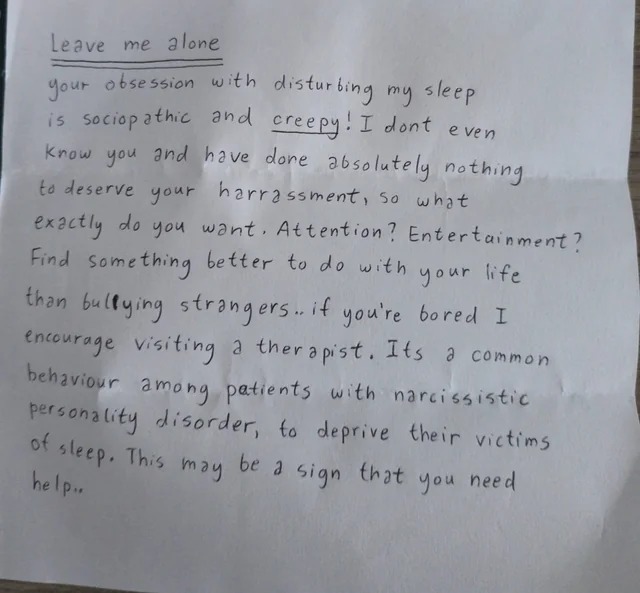 Leave me alone
your obsession with disturbing my sleep
is sociopathic and creepy! I dont even
know you and have done absolutely nothing
to deserve your harrassment, so what
exactly do you want. Attention? Entertainment?
Find something better to do with your life
than bullying strangers.. if you're bored I
encourage visiting a therapist. Its a common
behaviour among patients with narcissistic
personality disorder, to deprive their victims
of sleep. This may be a sign that you need
help..